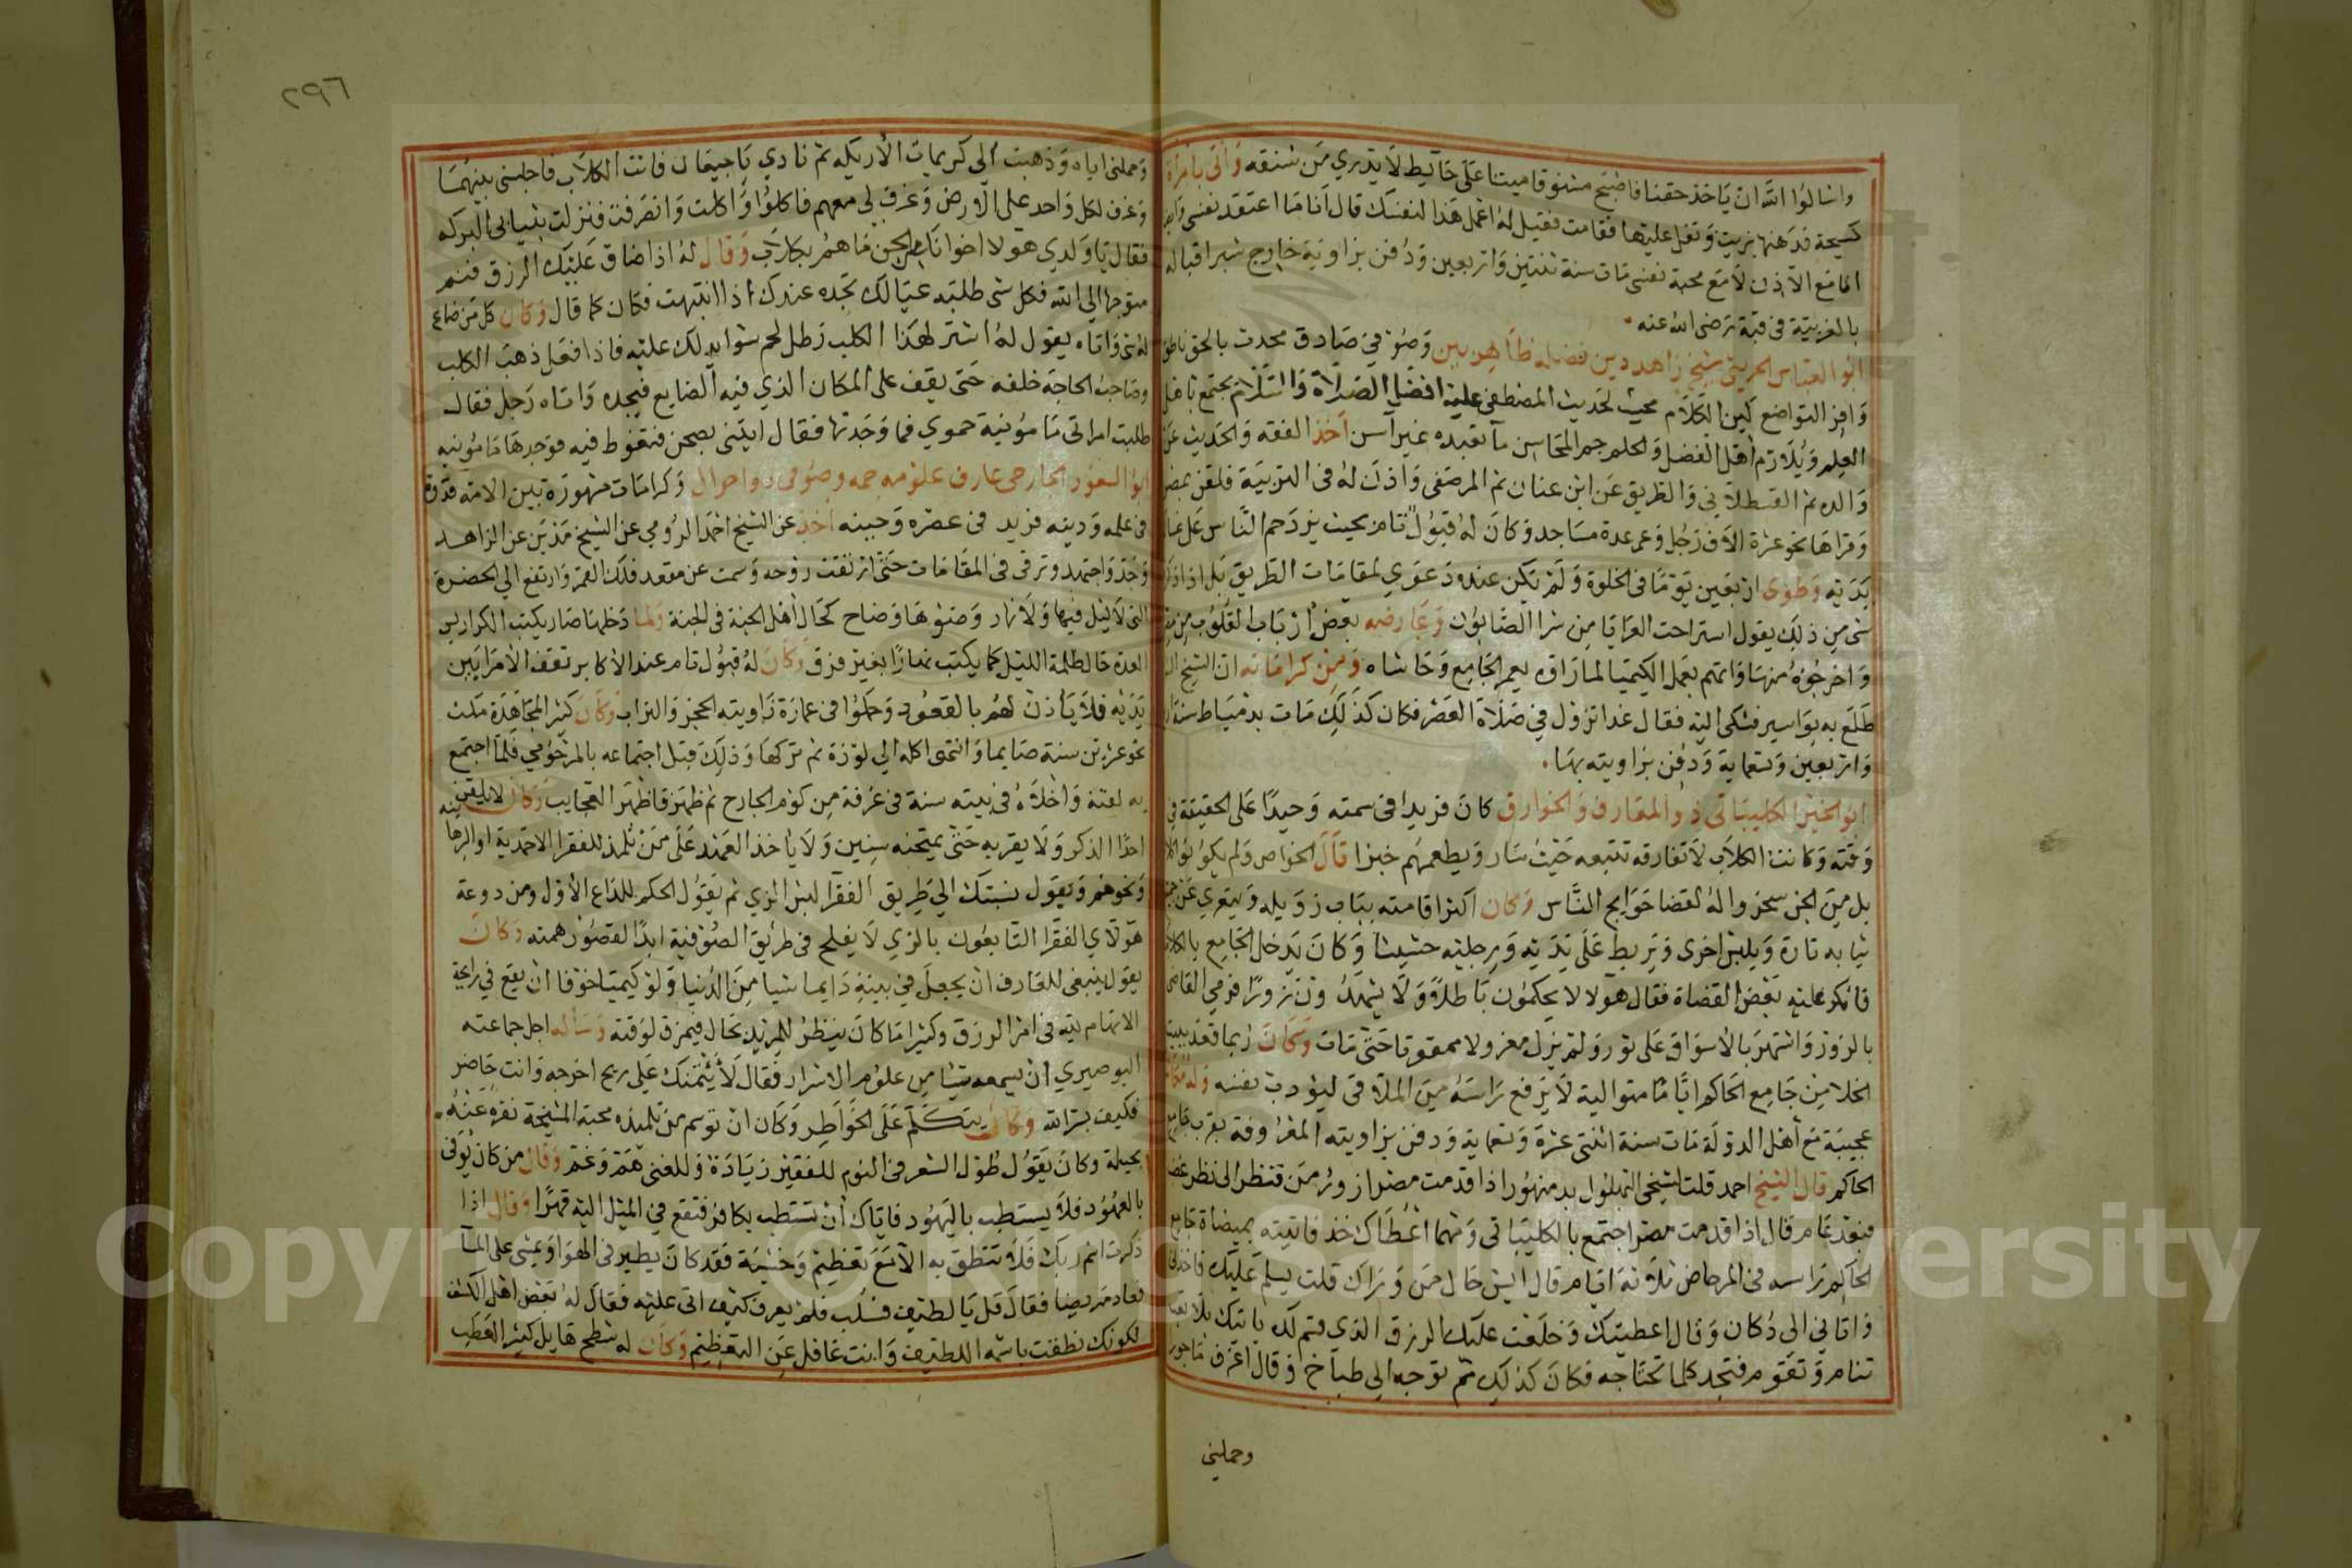 واسالوا الله ان ياخذ حقنا فاصبح مشنوقا ميتا على حايط لا يدري من شنقه واتي بامراة
كسيحة فدهنها بزيت وتفل عليها فقامت فقيل له اعمل هذا لنفسك قال انا ما اعتقد نفسي
انما مع الاذن لا مع محبة نفسي مات سنة ثنتين واربعين ودفن بزاويته خارج
بالغربية في قبة رضي الله عنه
ابو العباس الحريثي شيخ زاهد دين فضله ظاهر بين وصوفي صادق محدث بالحق ناطق
وافر التواضع لين الكلام محب لحديث المصطفى عليه افضل الصلاة والسلام يجتمع باهل
العلم ويلازم اهل الفضل والحلم جم المحاسن ما تعبده غير آسن اخذ الفقه والحديث عن
والده ثم القسطلاني والطريق عن ابن عنان ثم المرصفي واذن له في التربية فلقن بمصر
وقراها نحو عشرة الاف رجل وعمر عدة مساجد وكان له قبول تام بحيث يزدحم الناس على
يديه وطوى اربعين يوما في الخلوة ولم تكن عنده دعوي لمقامات الطريق بل اذا ذكر
شي من ذلك يقول استراحت العرايا من شرا الصابون وعارضه بعض ارباب القلوب
واخرجوه منها واتهم بعمل الكيميا لما راوه يعمر الجامع وحاشاه ومن كراماته ان الشيخ
طلع به بواسير فشكى اليه فقال غدا تزول في صلاة العصر فكان كذلك مات بدمياط سنة
واربعين وتسعماية ودفن بزاويته بها
ابو الخير الكليباتي ذو المعارف والخوارق كان فريدا في سمته وحيدا على الحقيقة في
وقته وكانت الكلاب لا تفارقه تتبعه حيث سار ويطعمهم خبزا قال الخواص ولم يكونوا كلابا
بل من الجن سخروا له لقضا حوايج الناس وكان اكثر اقامته بباب زويله ويتعري عن
ثيابه تارة ويلبس اخرى ويربط على يديه ورجليه حشيشا وكان يدخل الجامع بالكلاب
فانكر عليه بعض القضاة فقال هولا لا يحكمون باطلا ولا يشهدون زورا فرمي القاضي
بالزور واشتهر بالاسواق على ثور ولم يزل معزولا ممقوتا حتى مات وكان ربما قعد ببيت
الخلا من جامع الحاكم اياما متوالية لا يرفع راسه من الملاقي ليودب نفسه
عجيبة مع اهل الدولة مات سنة اثنتي عشرة وتسعماية ودفن بزاويته المعروفة بقرب جامع
الحاكم قال الشيخ احمد قلت لشيخي البهلول بدمنهور اذا قدمت مصر ازور من فنظر الى نظر
فبعد عام قال اذا قدمت مصر اجتمع بالكليباتي ومهما اعطاك خذ فاتيته بميضاة جامع
الحاكم راسه في المرحاض ثلاثة ايام قال ايش حال من وراك قلت يسلم عليك فاخذني
واتاني الى دكان وقال اعطيتك وخلعت عليك الرزق الذي قسم لك ياتيك بلا تعب
تنام وتقوم فتجد كلما تحتاجه فكان كذلك ثم توجه الى طباخ وقال اغرف
وحملني
٢٩٦
وحملني اياه وذهبت الي كريمات الازبكيه ثم نادي يا جيعان فاتت الكلاب فاجلسني بينهما
وغرف لكل واحد على الارض وغرف لي معهم فاكلوا واكلت وانصرفت فنزلت بثيابي البركه
فقال يا ولدي هولا اخواننا من الجن ما هم بكلاب وقال له اذا ضاق عليك الرزق فنم
متوجها الي الله فكل شي طلبته عيالك تجده عندك اذا انتبهت فكان كما قال وكان كل من ضاع
له شي واتاه يقول له اشتر لهذا الكلب رطل لحم شوا يدلك عليه فاذا فعل ذهب الكلب
وصاحب الحاجه خلفه حتى يقف على المكان الذي فيه الضايع فيجده واتاه رجل فقال
طلبت امراتي مامونية حموي فما وجدتها فقال ايتني بصحن فتغوط فيه فوجدها مامونيه
ابو السعود الجارحي عارف علومه جمه وصوفي ذو احوال وكرامات مشهورة بين الامه قدوة
في علمه ودينه فريد في عصره وحينه اخذ عن الشيخ احمد الرومي عن الشيخ مدين عن الزاهد
وجد واجتهد وترقى في المقامات حتى ارتفعت روحه وسمت عن مقعد فلك القمر وارتفع الي الحضرة
التي لا ليل فيها ولا نهار وضوها وضاح كحال اهل الجنة في الجنة ولما دخلها صار يكتب الكراريس
العدة حال ظلمة الليل كما يكتب نهارا بغير فرق وكان له قبول تام عند الاكابر تقف الامرا بين
يديه فلا ياذن لهم بالقعود وحملوا في عمارة زاويته الحجر والتراب وكان كثير المجاهدة مكث
نحو عشرين سنة صايما وانتهى اكله الي لوزة ثم تركها وذلك قبل اجتماعه بالمرحومي فلما اجتمع
به لقنه واخلاه في بيته سنة في غرفة من كوم الجارح ثم ظهر فاظهر العجايب وكان لا يلقن
احدا الذكر ولا يقربه حتى يمتحنه سنين ولا ياخذ العهد على من تلمذ للفقرا الاحمدية او البرهامية
ونحوهم ويقول نسبتك الي طريق الفقرا لبس الزي ثم يقول الحكم للداع الاول ومن دوعة
هولاي الفقرا التابعون بالزي لا يفلح في طريق الصوفية ابدا لقصور همته وكان
يقول ينبغي للعارف ان يجعل في بيته دايما شيا من الدنيا ولو كيميا خوفا ان يقع في رايحة
الاتهام لله في امر الرزق وكثيرا ما كان ينظر للمريد بحال فيمزق لوقته وساله اجل جماعته
البوصيري ان يسمعه شيا من علوم الاسرار فقال لا يتمنك علي ريح اخرجه وانت حاضر
فكيف بسر الله وكان يتكلم على الخواطر وكان ان توسم من تلميذه محبة المشيخة نفره عنه
بحيلة وكان يقول طول الشعر في النوم للفقير زيادة وللغني هم وغم وقال من كان يوفي
بالعهود فلا يستطب باليهود فاياك ان تستطب بكافر فتقع في الميل اليه قهرا وقال اذا
ذكرت اسم ربك فلا تنطق به الا مع تعظيم وخشية فقد كان يطير في الهوا ويمشي على الما
فعاد مريضا فقال قل يا لطيف فسلب فلم يعرف كيف اتى عليه فقال له بعض اهل الكشف
لكونك نطقت باسمه اللطيف وانت غافل عن التعظيم وكان له شطح هايل كثير العطب